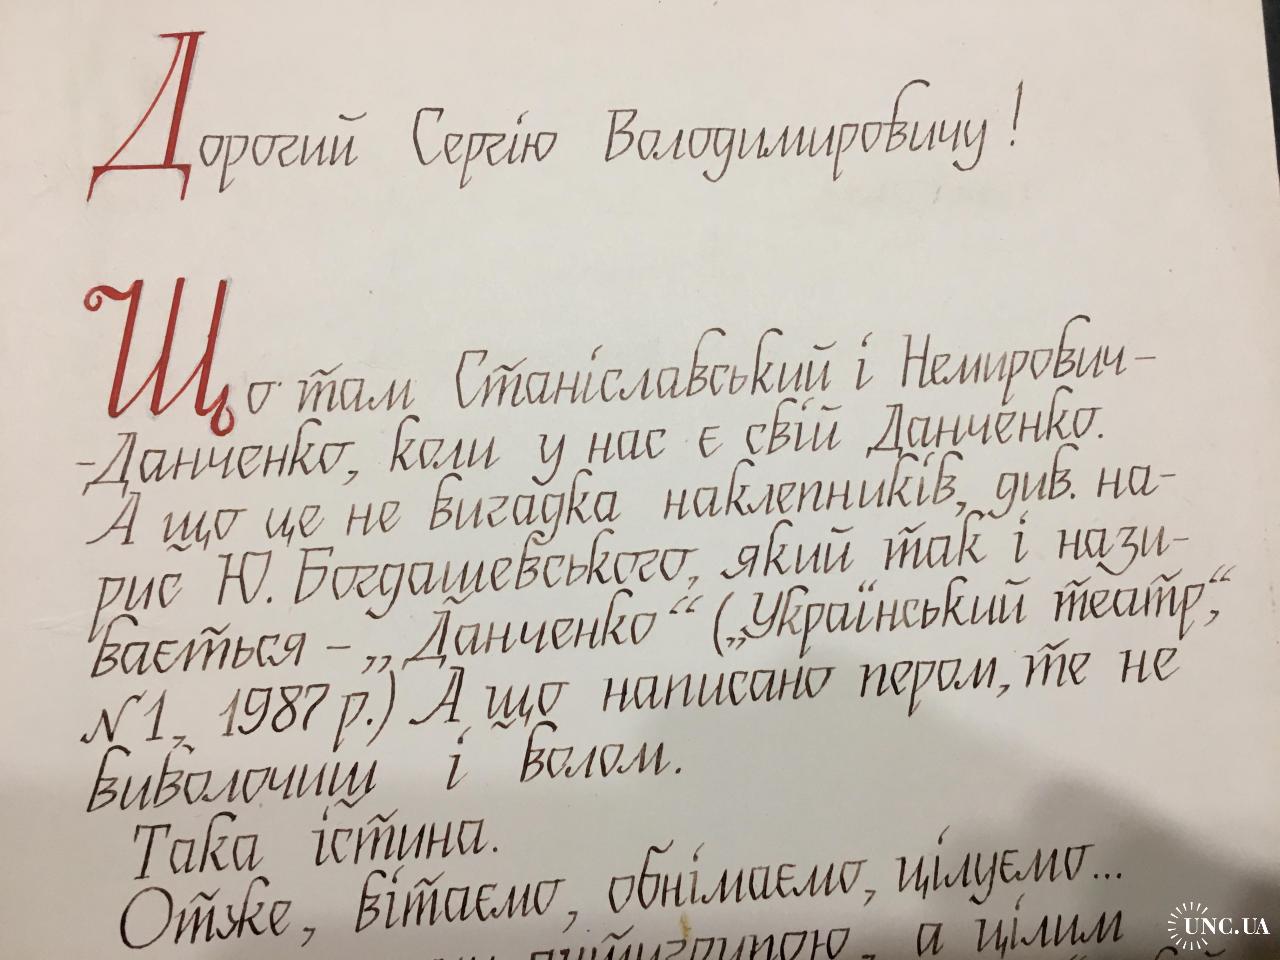 Дорогий Сергію Володимировичу!
Що там Станіславський і Немирович-
-Данченко, коли у нас є свій Данченко.
А що це не вигадка наклепників, див. на-
рис Ю. Богдашевського, який так і нази-
вається – „Данченко“ („Український театр“,
№1, 1987 р.) А що написано пером, те не
виволочиш і волом.
Така істина.
Отже, вітаємо, обнімаємо, цілуємо...
а цілим
UNC.UA